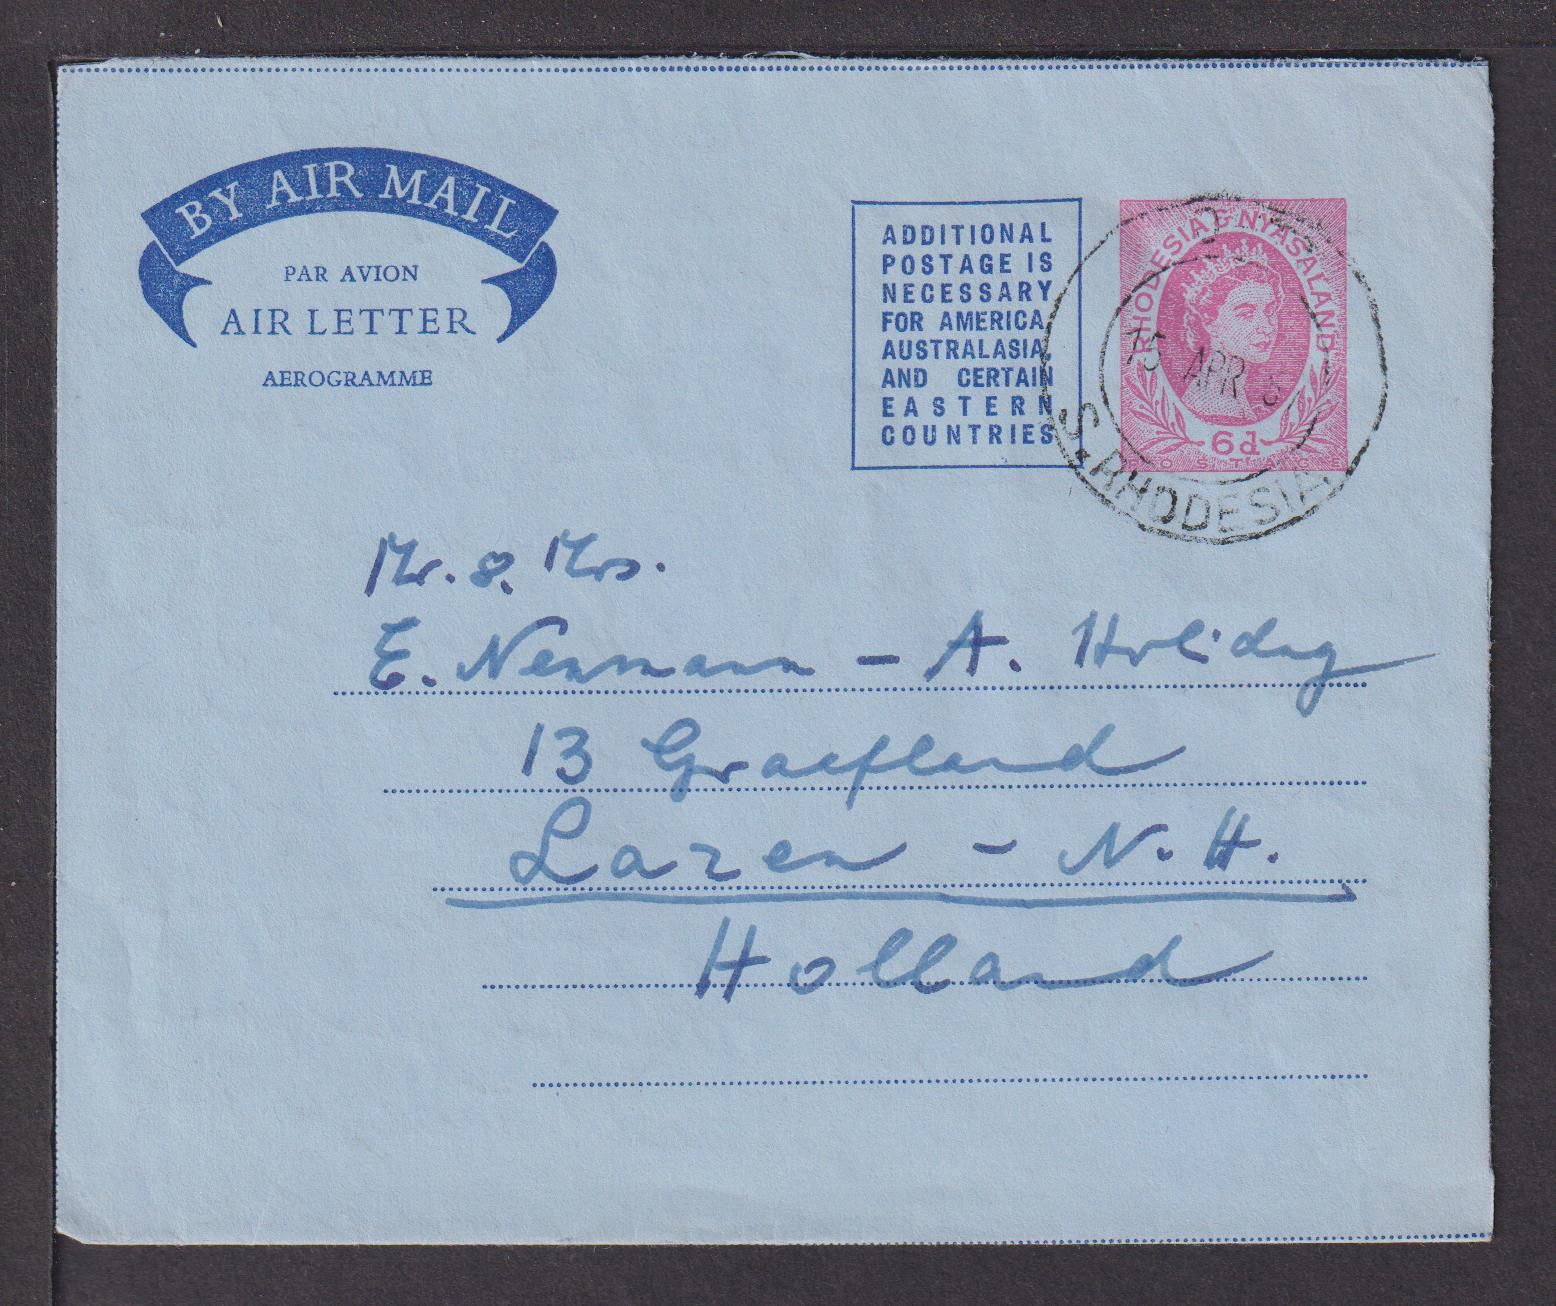 BY AIR MAIL
PAR AVION
AIR LETTER
AEROGRAMME
ADDITIONAL
POSTAGE IS
NECESSARY
FOR AMERICA,
AUSTRALASIA,
AND CERTAIN
EASTERN
COUNTRIES
RHODESIA & NYASALAND
6d
POSTAGE
15 APR 5
S. RHODESIA
Mr. & Mrs.
E. Neumann - A. Holiday
13 Graefland
Laren - N.H.
Holland